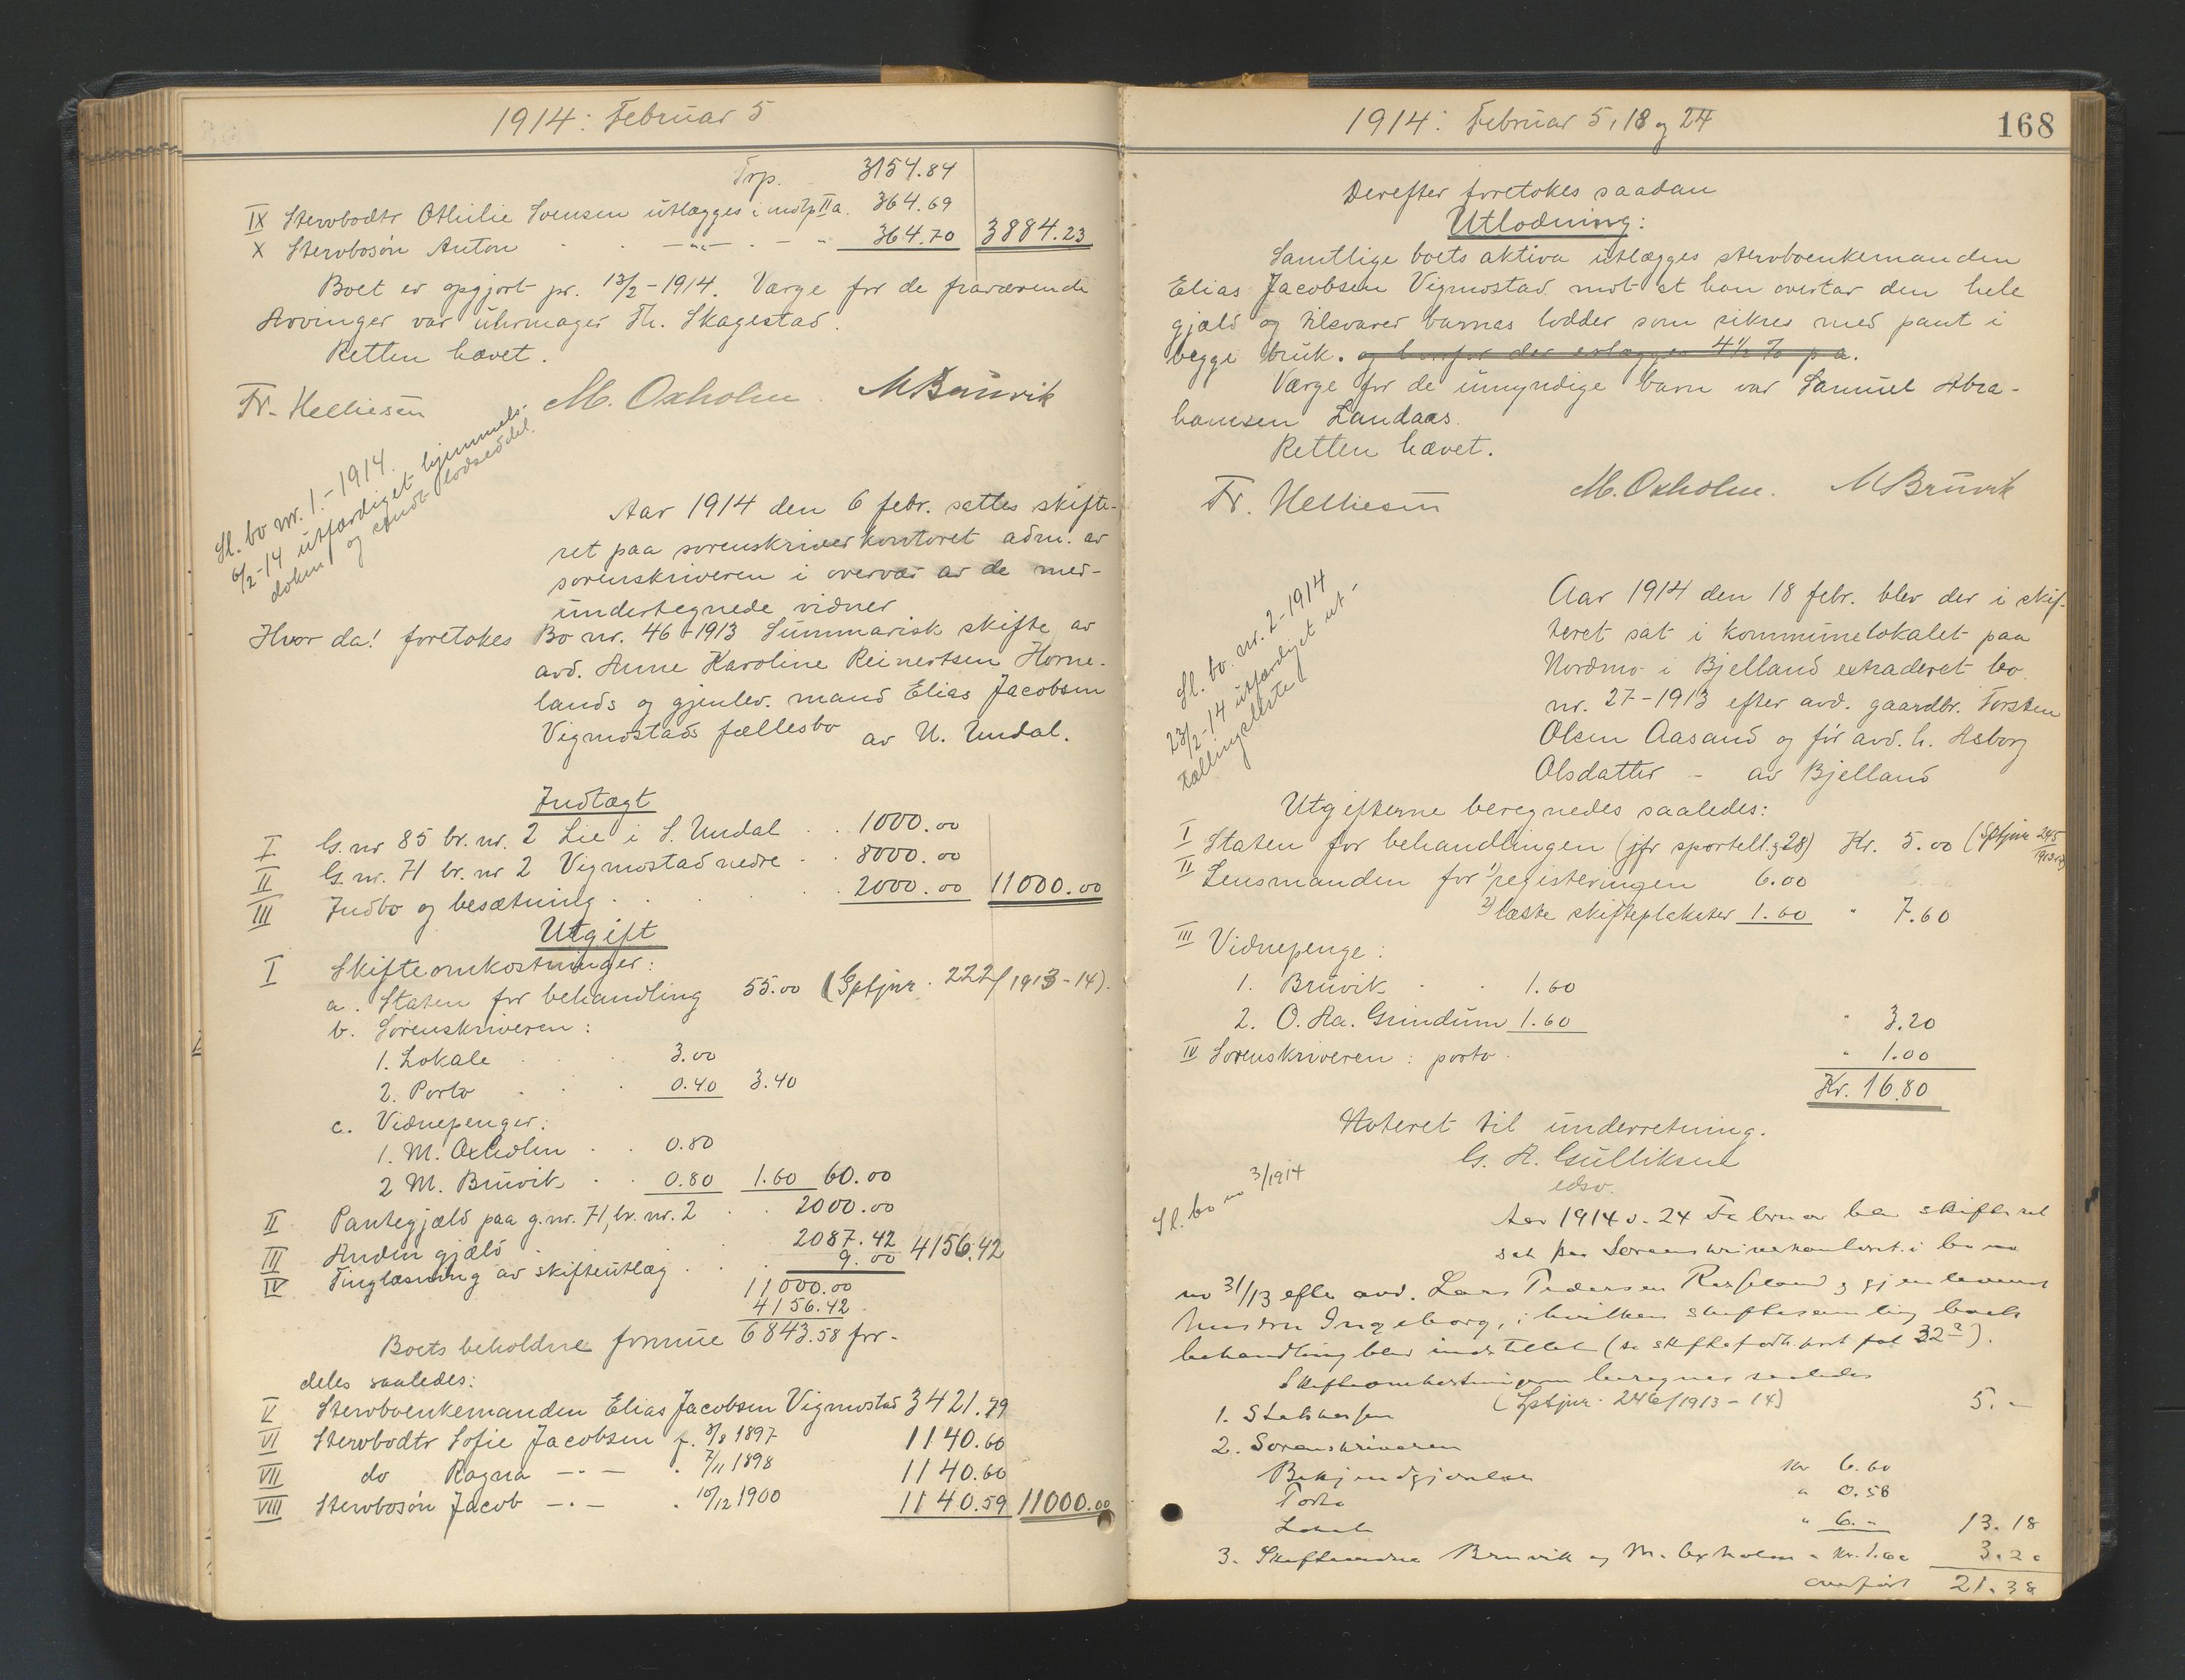 1914: Februar 5
Trp. 3154.84
IX Stervbodtr Othilie Svensen utlægges i indtp IIa. 364.69
X Stervbosøn Anton - " - 364.70 3884.23
Boet er opgjort pr. 13/2-1914. Værge for de fraværende
Arvinger var uhrmager Th. Skagestad.
Retten hævet.
Fr. Helliesen M. Oxholm. M Bruvik
Sl. bo nr. 1.-1914.
6/2-14 utfærdiget hjemmels-
dokum og sendt lodseddel.
Aar 1914 den 6 febr. sattes skifte-
ret paa sorenskriverkontoret adm. av
sorenskriveren i overvær av de med-
undertegnede vidner
Hvor da! foretokes Bo nr. 46-1913 Summarisk skifte av
avd. Anne Karoline Reinertsen Horne-
lands og gjenlev. mand Elias Jacobsen
Vigmostads fællesbo av N. Undal.
Indtægt
I G. nr 85 br. nr. 2 Lie i S. Undal . . 1000.00
II G. nr. 71 br. nr 2 Vigmostad nedre . . 8000.00
III Indbo og besætning . . . . 2000.00 11000.00
Utgift
I Skifteomkostninger:
a. Staten for behandling 55.00 (Sptjnr. 222/1913-14).
b. Sorenskriveren:
1. Lokale . . 3.00
2. Porto . . . 0.40 3.40
c. Vidnepenger:
1. M. Oxholm . . 0.80
2 M. Bruvik . . 0.80 1.60 60.00
II Pantegjæld paa g.nr. 71, br. nr. 2 . . 2000.00
III Anden gjæld . . . 2087.42
IV Tinglæsning av skifteutlæg . . . 9.00 4156.42
11000.00
4156.42
Boets beholdne formue 6843.58 for-
deles saaledes:
V Stervboenkemanden Elias Jacobsen Vigmostad 3421.79
VI Stervbodtr Sofie Jacobsen f. 8/8 1897 1140.60
VII do Ragna -.- . 7/11 1898 1140.60
VIII Stervbosøn Jacob -.- . 10/12 1900 1140.59 11000.00
1914: Februar 5, 18 og 24
168
Derefter foretokes saadan
Utlodning:
Samtlige boets aktiva utlægges stervboenkemanden
Elias Jacobsen Vigmostad mot at han overtar den hele
gjæld og tilsvarer barnas lodder som sikres med pant i
begge bruk. og hvorfor der erlægges 4½ % p a.
Værge for de umyndige barn var Samuel Abra-
hamsen Landaas.
Retten hævet.
Fr. Helliesen M. Oxholm. M Bruvik
Sl. bo. nr. 2-1914
23/2-14 utfærdiget ut-
Aar 1914 den 18 febr. blev der i skif-
teret sat i kommunelokalet paa
Nordmo i Bjelland extraderet bo
nr. 27-1913 efter avd. gaardbr. Torsten
Olsen Aasand og før avd. h. Asborg
Olsdatter - av Bjelland
Utgifterne beregnedes saaledes:
I Staten for behandlingen (jfr sportell. § 28) Kr. 5.00 (Sptjnr 245
II Lensmanden for 1) registeringen 6.00
2) læste skifteplakater 1.60 " 7.60
III Vidnepenge:
1. Bruvik . . 1.60
2. O. Aa. Grindum 1.60 " 3.20
IV Sorenskriveren: porto . " 1.00
Kr. 16.80
Noteret til underretning.
G. A. Gulliksen
edsv.
Sl. bo no 3/1914
Aar 1914 d. 24 Februar blev skifteret
sat paa Sorenskriverkontoret i bo
no 31/13 efter avd. Lars Pedersen og gjenlevende
hustru Ingeborg, i hvilken skiftesamling boets
behandling blev indstillet (se skifteforh. prot fol 32).
Skifteomkostningerne beregnes saaledes
1. Statskassen (Sptjnr. 246/1913-14) 5.-
2. Sorenskriveren
Bekjendtgjørelse Kr 6.60
Porto " 0.58
Lokale " 6.- 13.18
3. Skiftevidne Bruvik og M. Oxholm a Kr. 1.60 3.20
overført 21.38